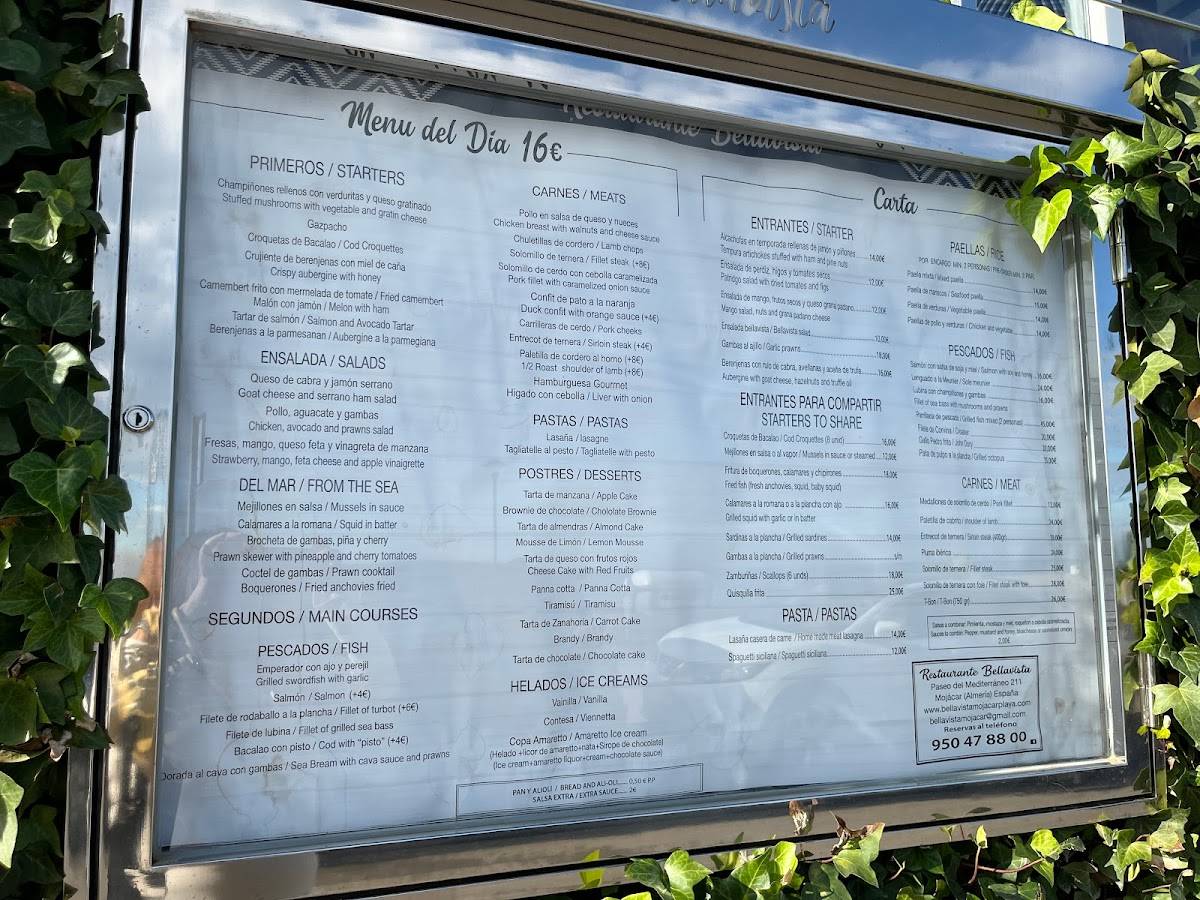 Restaurante Bellavista
Menu del Día 16€
PRIMEROS / STARTERS
Champiñones rellenos con verduritas y queso gratinado
Stuffed mushrooms with vegetable and gratin cheese
Gazpacho
Croquetas de Bacalao / Cod Croquettes
Crujiente de berenjenas con miel de caña
Crispy aubergine with honey
Camembert frito con mermelada de tomate / Fried camembert
Malón con jamón / Melon with ham
Tartar de salmón / Salmon and Avocado Tartar
Berenjenas a la parmesanan / Aubergine a la parmegiana
ENSALADA / SALADS
Queso de cabra y jamón serrano
Goat cheese and serrano ham salad
Pollo, aguacate y gambas
Chicken, avocado and prawns salad
Fresas, mango, queso feta y vinagreta de manzana
Strawberry, mango, feta cheese and apple vinaigrette
DEL MAR / FROM THE SEA
Mejillones en salsa / Mussels in sauce
Calamares a la romana / Squid in batter
Brocheta de gambas, piña y cherry
Prawn skewer with pineapple and cherry tomatoes
Coctel de gambas / Prawn cooktail
Boquerones / Fried anchovies fried
SEGUNDOS / MAIN COURSES
PESCADOS / FISH
Emperador con ajo y perejil
Grilled swordfish with garlic
Salmón / Salmon (+4€)
Filete de rodaballo a la plancha / Filet of turbot (+6€)
Filete de lubina / Filet of grilled sea bass
Bacalao con pisto / Cod with "pisto" (+4€)
Dorada al cava con gambas / Sea Bream with cava sauce and prawns
CARNES / MEATS
Pollo en salsa de queso y nueces
Chicken breast with walnuts and cheese sauce
Chuletillas de cordero / Lamb chops
Solomillo de ternera / Fillet steak (+8€)
Solomillo de cerdo con cebolla caramelizada
Pork fillet with caramelized onion sauce
Confit de pato a la naranja
Duck confit with orange sauce (+4€)
Carrilleras de cerdo / Pork cheeks
Entrecot de ternera / Sirloin steak (+4€)
Paletilla de cordero al horno (+8€)
1/2 Roast shoulder of lamb (+8€)
Hamburguesa Gourmet
Higado con cebolla / Liver with onion
PASTAS / PASTAS
Lasaña / lasagne
Tagliatelle al pesto / Tagliatelle with pesto
POSTRES / DESSERTS
Tarta de manzana / Apple Cake
Brownie de chocolate / Chololate Brownie
Tarta de almendras / Almond Cake
Mousse de Limón / Lemon Mousse
Tarta de queso con frutos rojos
Cheese Cake with Red Fruits
Panna cotta / Panna Cotta
Tiramisú / Tiramisu
Tarta de Zanahoria / Carrot Cake
Brandy / Brandy
Tarta de chocolate / Chocolate cake
HELADOS / ICE CREAMS
Vainilla / Vanilla
Contesa / Viennetta
Copa Amaretto / Amaretto Ice cream
(Helado +licor de amaretto+nata+Sirope de chocolate)
(Ice cream+amaretto liquor+cream+chocolate sauce)
PAN Y ALIOLI / BREAD AND ALI-OLI...... 0,50 € P.P
SALSA EXTRA / EXTRA SAUCE...... 2€
Carta
ENTRANTES / STARTER
Alcachofas en temporada rellenas de jamón y piñones
Tempura artichokes stuffed with ham and pine nuts 14,00€
Ensalada de perdiz, higos y tomates secos
Patridgo salad with dried tomates and figs 12,00€
Ensalada de mango, frutos secos y queso grana padano 12,00€
Mango salad, nuts and grana padano cheese
Ensalada bellavista / Bellavista salad 10,00€
Gambas al ajillo / Garlic prawns 18,00€
Berenjenas con rulo de cabra, avellanas y aceite de trufa 16,00€
Aubergine with goat cheese, hazelnuts and truffle oil
ENTRANTES PARA COMPARTIR
STARTERS TO SHARE
Croquetas de Bacalao / Cod Croquettes (8 unid) 16,00€
Mejillones en salsa o al vapor / Mussels in sauce or steamed 12,00€
Fritura de boquerones, calamares y chipirones 18,00€
Fried fish (fresh anchovies, squid, baby squid)
Calamares a la romana o a la plancha con ajo 16,00€
Grilled squid with garlic or in batter
Sardinas a la plancha / Grilled sardines 14,00€
Gambas a la plancha / Grilled prawns s/m
Zamburiñas / Scallops (6 unds) 18,00€
Quisquilla frita 25,00€
PASTA / PASTAS
Lasaña casera de carne / Home made meat lasagna 14,00€
Spaguetti siciliana / Spaguetti siciliana 12,00€
PAELLAS / RICE
POR ENCARGO MIN. 2 PERSONAS / PRE-ORDER MIN. 2 PAR
Paella mixta / Mixed paella 14,00€
Paella de mariscos / Seafood paella 15,00€
Paella de verduras / Vegetable paella 14,00€
Paellas de pollo y verduras / Chicken and vegetable 14,00€
PESCADOS / FISH
Salmón con salsa de soja y miel / Salmon with soy and honey 16,00€
Lenguado a la Meunier / Sole meunier 24,00€
Lubina con champiñones y gambas 16,00€
Fillet of sea bass with mushrooms and prawns
Parrillada de pescado / Grilled fish mixed (2 personas) 45,00€
Filete de Corvina / Croaker
Gallo Pedro frito / John Dory
Pata de pulpo a la plancha / Grilled octopus
CARNES / MEAT
Medallones de solomillo de cerdo / Pork fillet
Paletilla de cabrito / shoulder of lamb
Entrecot de ternera / Sirloin steak (400gr)
Pluma ibérica
Solomillo de ternera / Fillet steak 25,00€
Solomillo de ternera con foie / Fillet steak with foie 28,00€
T-Bon / T-Bon (750 gr) 26,00€
2,00€
Restaurante Bellavista
Paseo del Mediterráneo 211
Mojácar (Almería) España
www.bellavistamojacarplaya.com
bellavistamojacar@gmail.com
Reservas al teléfono
950 47 88 00